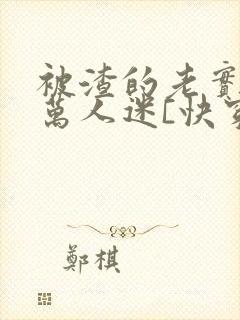 被渣的老實
萬人迷[快穿
鄭棋